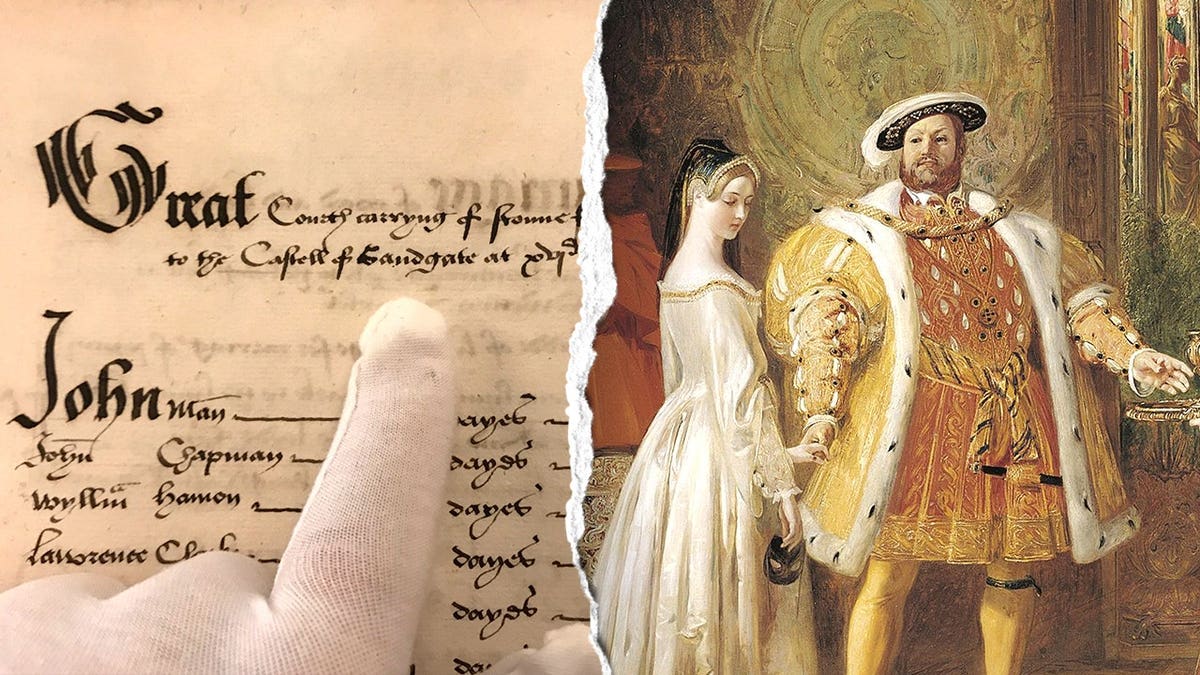 Great Courth carryng of stonne
to the Castell of Sandgate at xvjd
John man ayes
John Chapman dayes
Wyllm hamon dayes
Lawrence dayes
dayes